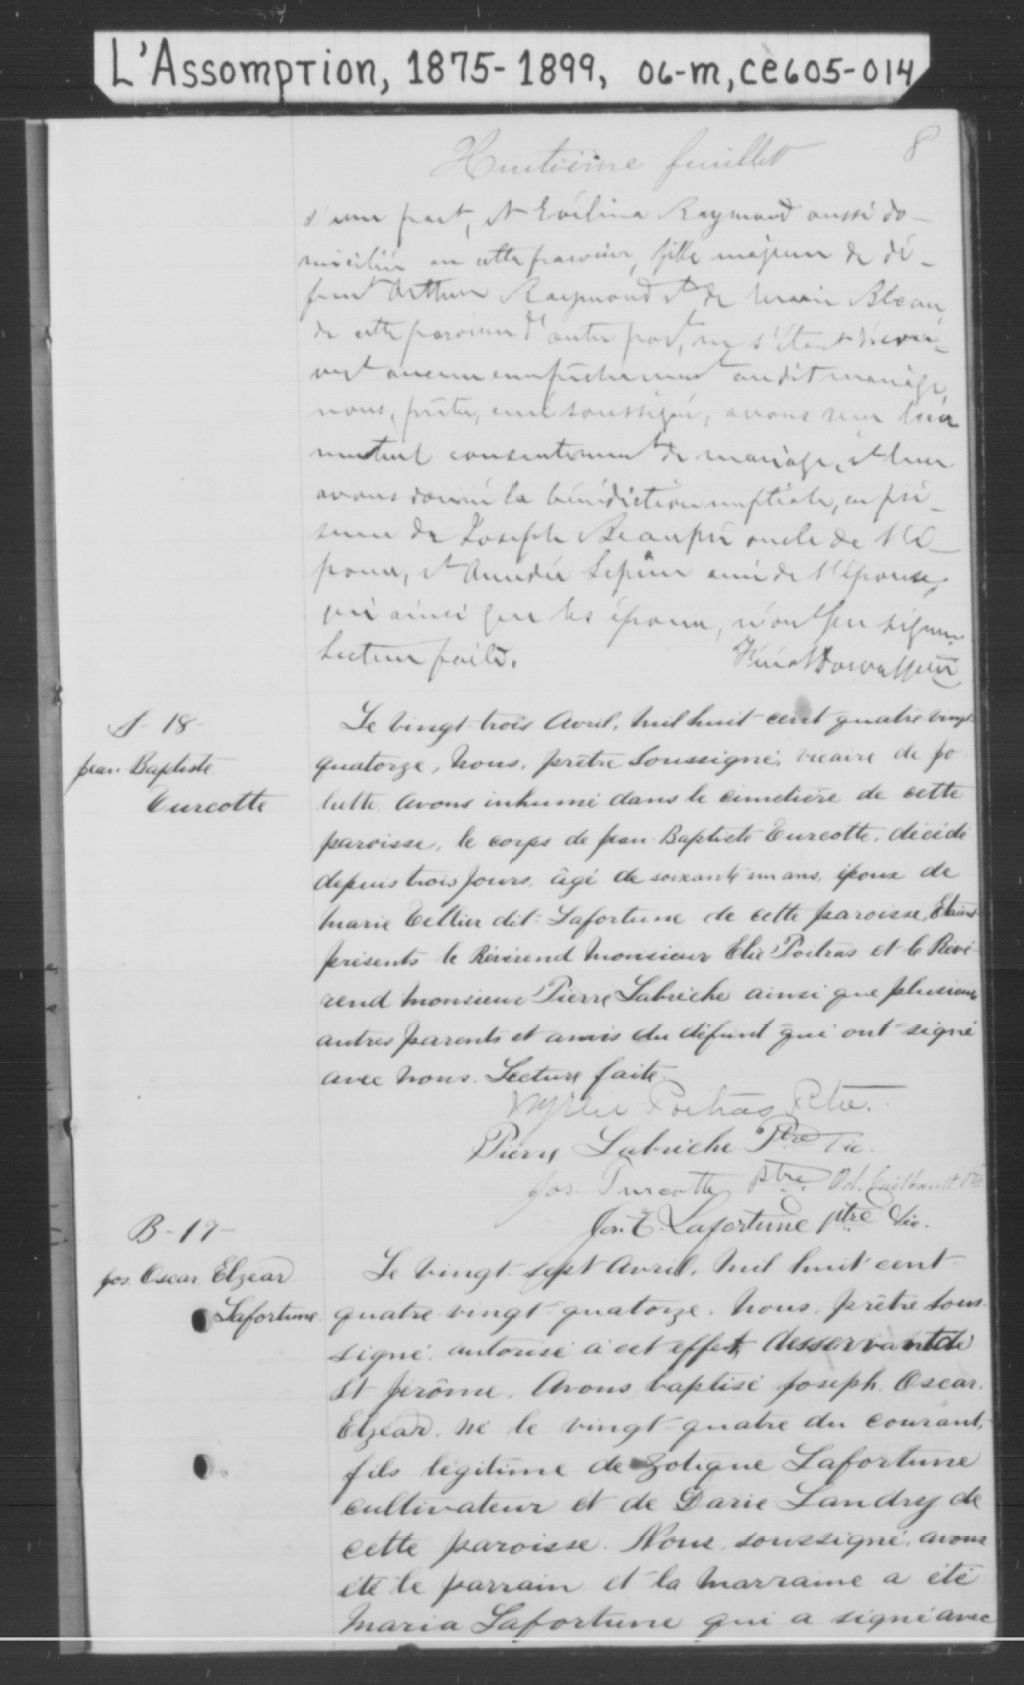 L'Assomption, 1875-1899, 06-m, ce605-014
Huitième feuillet 8
d'une part, et Evélina Raymond aussi do-
miciliée en cette paroisse, fille majeure de dé-
funt Arthur Raymond et de Marie Bleau,
de cette paroisse d'autre part, ne s'étant décou-
vert aucun empêchement au dit mariage,
nous, prêtre, curé soussigné, avons reçu leur
mutuel consentement de mariage, et leur
avons donné la bénédiction nuptiale, en pré-
sence de Joseph Beaupré oncle de l'é-
poux, et Amédée Lépine ami de l'épouse,
qui ainsi que les époux, n'ont pu signer.
Lecture faite.
S-18-
Jean-Baptiste
Turcotte
Le vingt-trois Avril, mil huit-cent quatre-vingt
quatorze, Nous, prêtre Soussigné, vicaire de Jo
liette Avons inhumé dans le cimetière de cette
paroisse, le corps de Jean-Baptiste Turcotte, décédé
depuis trois jours, âgé de soixante un ans, époux de
Marie Tellier dit-Lafortune de cette paroisse, Etaient
présents le Révérend Monsieur Elie Poitras et le Révé-
rend Monsieur Pierre Labrèche ainsi que plusieurs
autres parents et amis du défunt qui ont signé
avec Nous. Lecture faite.
Poitras Ptre.
Pierre Labrèche Ptre Vic.
Jos. Turcotte ptre
Jos. E. Lafortune ptre Vic.
B-19-
Jos. Oscar Elzéar
Lafortune
Le vingt-sept Avril, mil huit cent
quatre-vingt-quatorze, Nous, prêtre sous-
signé, autorisé à cet effet, desservant de
St Jérôme, Avons baptisé Joseph, Oscar,
Elzéar, né le vingt-quatre du courant,
fils légitime de Zotique Lafortune
cultivateur et de Darie Landry de
cette paroisse. Nous soussigné, avons
été le parrain et la marraine a été
Maria Lafortune qui a signé avec